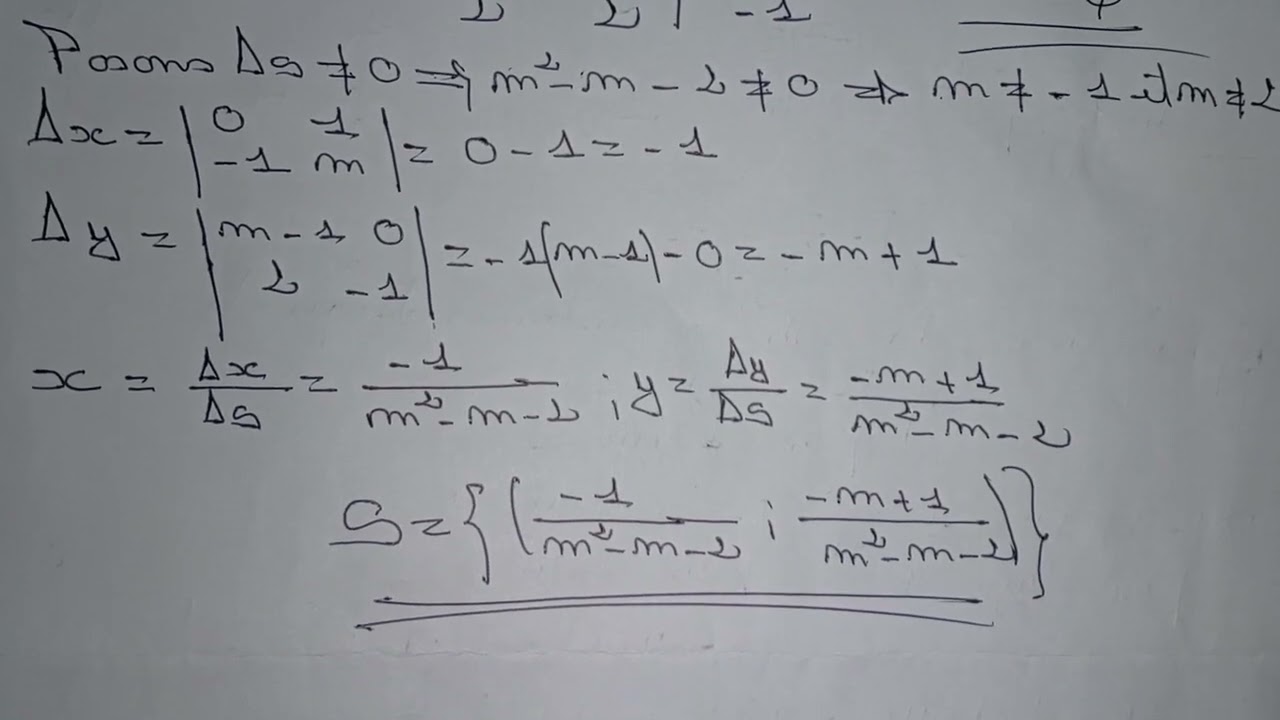 Posons Δs ≠ 0 ⟹ m² - m - 2 ≠ 0 ⟹ m ≠ -1 et m ≠ 2
Δx = | 0 1 |
| -1 m | = 0 - 1 = -1
Δy = | m - 1 0 |
| 2 -1 | = -1(m-1) - 0 = -m + 1
x = Δx/Δs = -1/(m² - m - 2) ; y = Δy/Δs = (-m + 1)/(m² - m - 2)
S = {( -1/(m² - m - 2) ; (-m + 1)/(m² - m - 2) )}